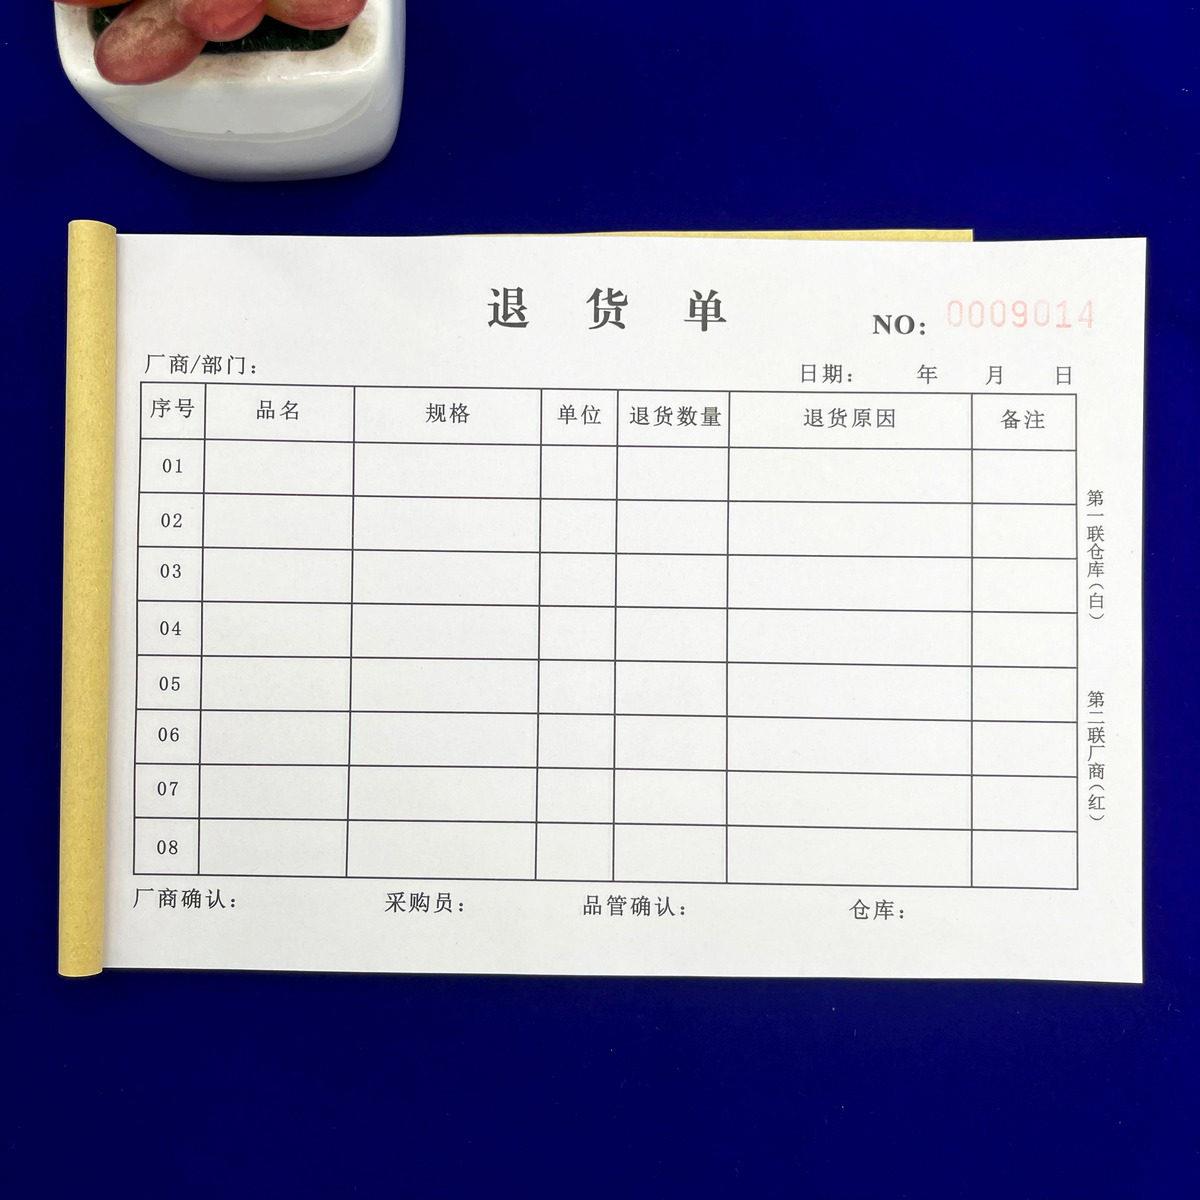 退 货 单
NO: 0009014
厂商/部门:
日期: 年 月 日
序号 品名 规格 单位 退货数量 退货原因 备注
01
02
03
04
05
06
07
08
厂商确认: 采购员: 品管确认: 仓库:
第一联仓库(白)
第二联厂商(红)